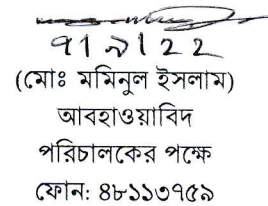 ৭।৯।২২
(মোঃ মমিনুল ইসলাম)
আবহাওয়াবিদ
পরিচালকের পক্ষে
ফোন: ৪৮১১৩৭৫৯